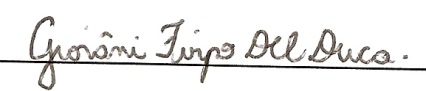 Giovâni Firpo Del Duca.